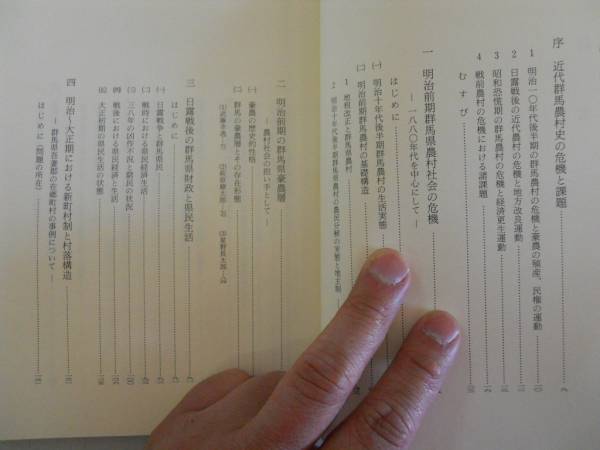 序 近代群馬農村史の危機と課題
1 明治一〇年代後半期の群馬農村の危機と豪農の殖産、民権の運動
2 日露戦後の近代農村の危機と地方改良運動
3 昭和恐慌期の群馬農村の危機と経済更生運動
4 戦前農村の危機における諸課題
むすび
一 明治前期群馬県農村社会の危機
― 一八八〇年代を中心にして ―
はじめに
(一) 明治十年代後半期群馬農村の生活実態
(二) 明治前期群馬農村の基礎構造
1 地租改正と群馬県農村
2 明治十年代後半期群馬県農村の農民分解の実態と地主制
二 明治前期の群馬県豪農層
― 農村社会の担い手として ―
(一) 豪農の歴史的性格
(二) 群馬の豪農層とその存在形態
三 日露戦後の群馬県財政と県民生活
はじめに
(一) 日露戦争と群馬県民
(二) 戦時における県民経済生活
(三) 三八年の凶作不況と窮民の状況
(四) 戦後における県民経済と生活
(五) 大正初期の県民生活の状態
四 明治～大正期における新町村制と村落構造
― 群馬県吾妻郡の在郷町村の事例について ―
はじめに（問題の所在）